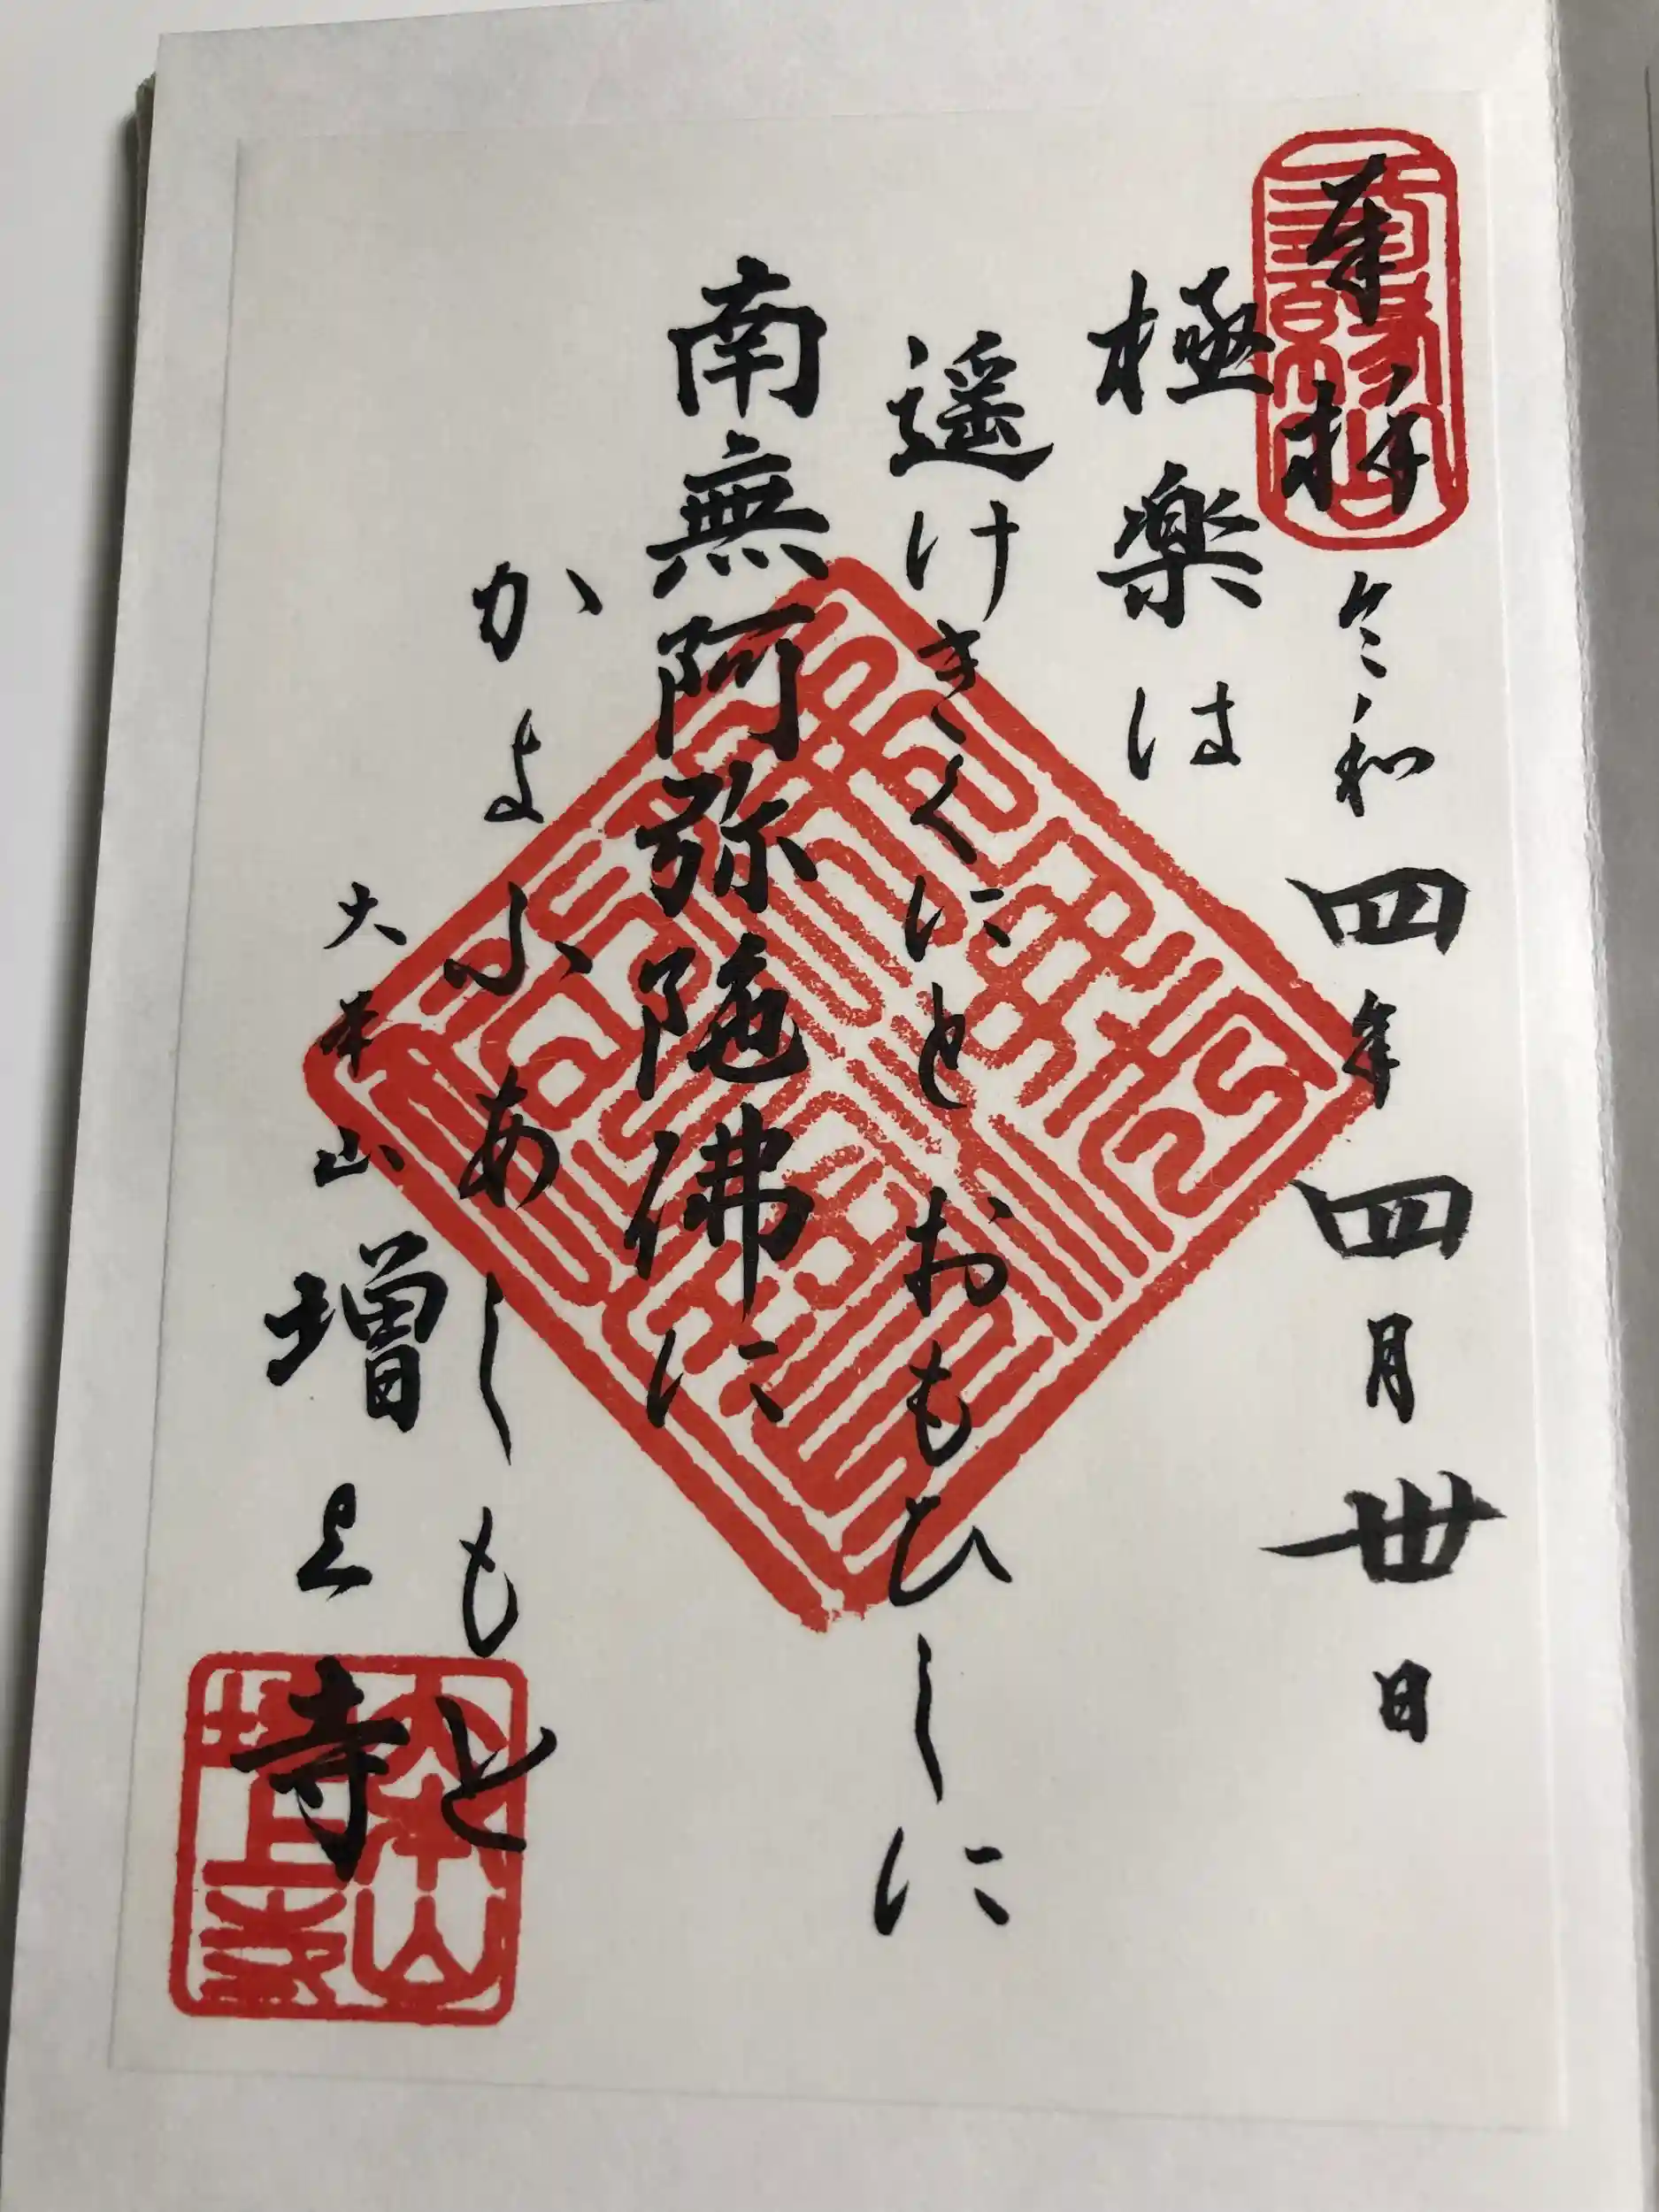 奉拝 令和四年四月卅日
極楽は
遥けきくにとおもひしに
南無阿弥陀佛に
かよふあしもと
大本山 増上寺
大本山
増上寺